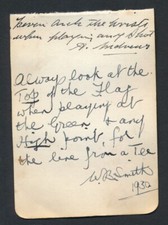 Never arch the wrists
when playing any shot
A. Andrews
Always look at the
Top of the Flag
when playing at
the Green & any
High point for
the line from a Tee
W.B. Smith
1932